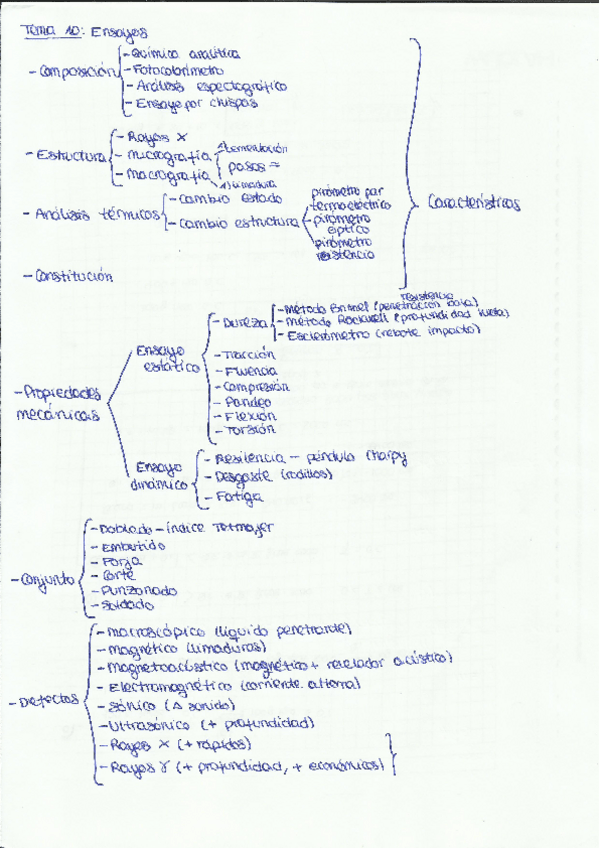 Tema 10: Ensayos
- Composición
- Química analítica
- Fotocolorímetro
- Análisis espectográfico
- Ensaye por chispas
- Estructura
- Rayos X
- Micrografía
- Macrografía
pasos =
- Análisis térmicos
- Cambio estado
- Cambio estructura
pirómetro par
termoeléctrico
pirómetro
óptico
pirómetro
resistencia
Características
- Constitución
- Propiedades
mecánicas
Ensayo
estático
- Dureza
resistencia
- Método Brinnel (penetración bola)
- Método Rockwell (profundidad huella)
- Esclerómetro (rebote impacto)
- Tracción
- Fluencia
- Compresión
- Pandeo
- Flexión
- Torsión
Ensayo
dinámico
- Resilencia - péndulo Charpy
- Desgaste (rodillos)
- Fatiga
- Conjunto
- Doblado - índice Tetmayer
- Embutido
- Forja
- Corte
- Punzonado
- Soldado
- Defectos
- Macroscópico (líquido penetrante)
- Magnético (limaduras)
- Magnetoacústico (magnético + revelador acústico)
- Electromagnético (corriente alterna)
- Sónico (Δ sonido)
- Ultrasónico (+ profundidad)
- Rayos X (+ rápidos)
- Rayos γ (+ profundidad, + económicos)